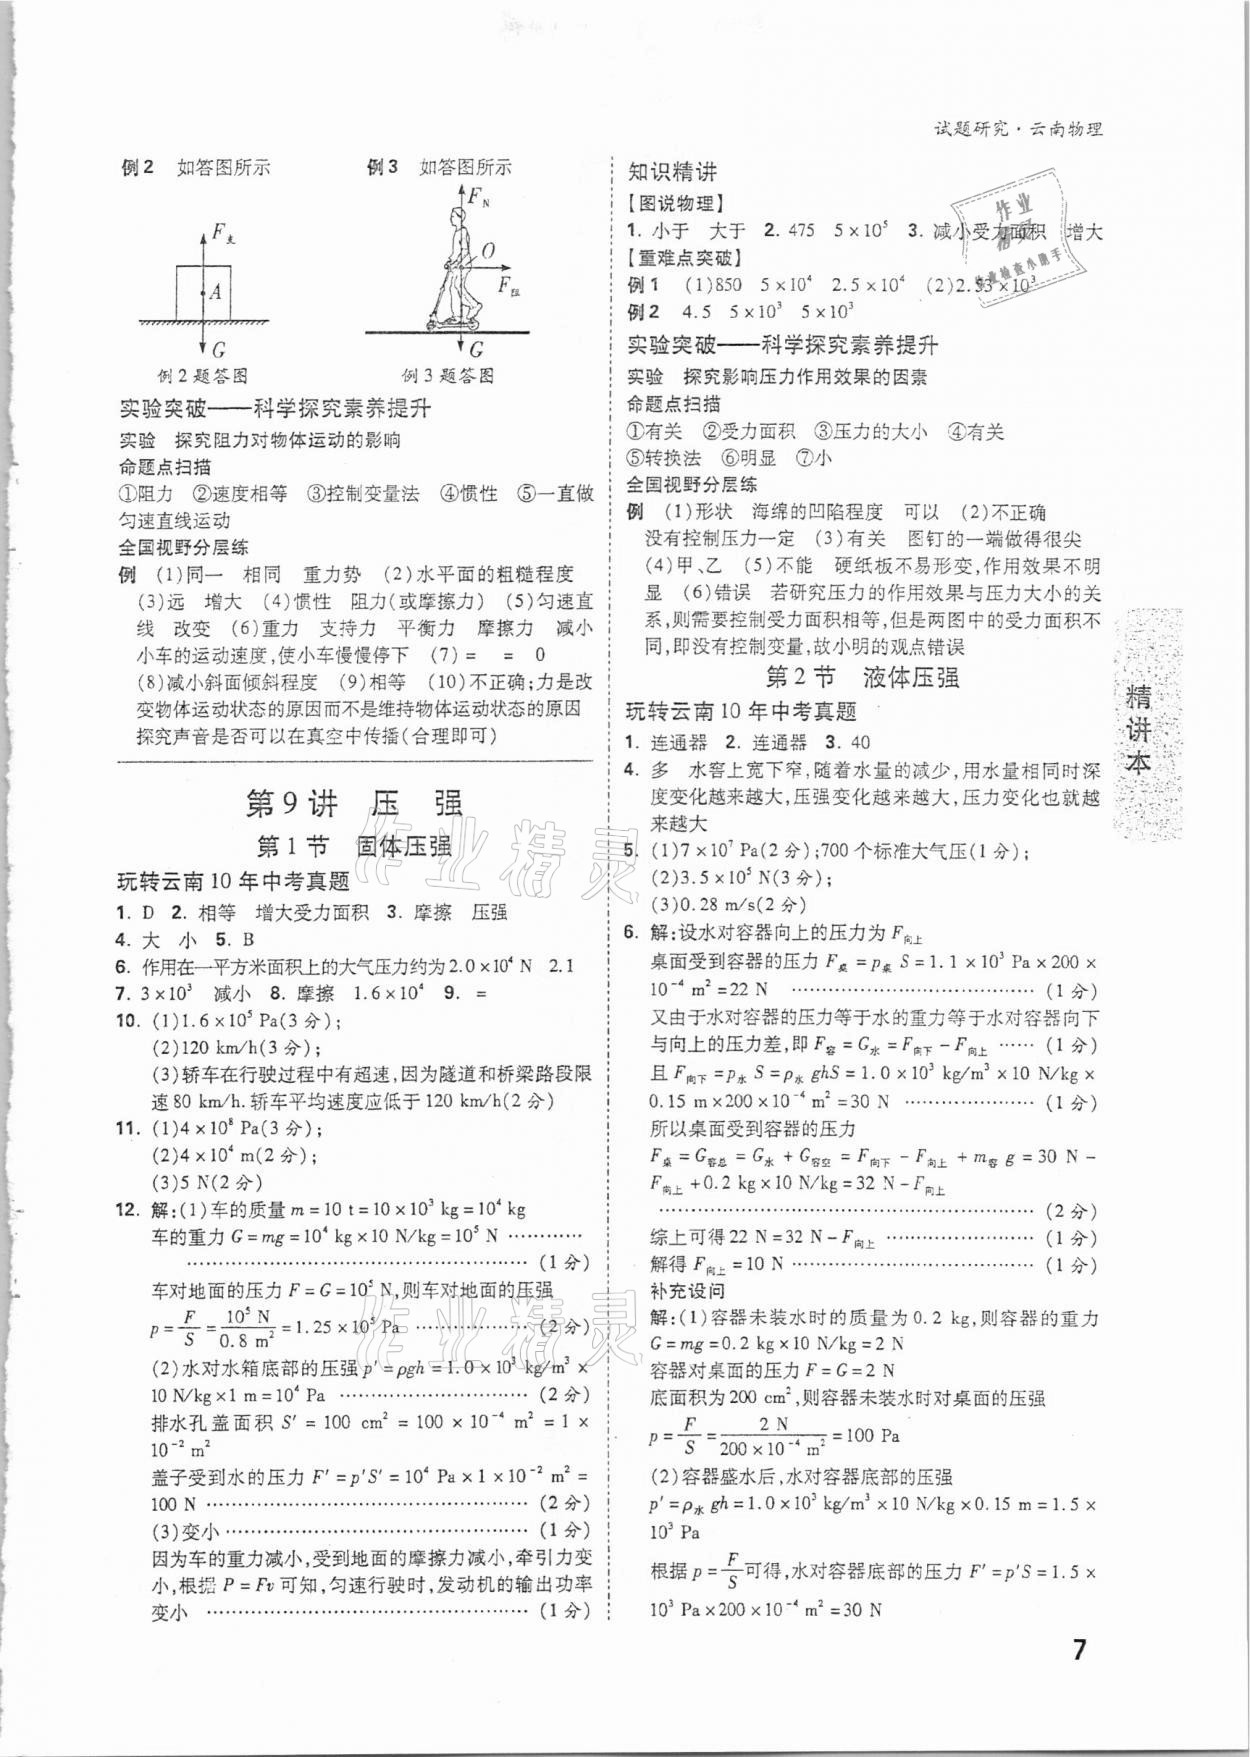 试题研究·云南物理
例2 如答图所示 例3 如答图所示
F支
A
G
例2题答图
F_N
O
F阻
G
例3题答图
实验突破——科学探究素养提升
实验 探究阻力对物体运动的影响
命题点扫描
①阻力 ②速度相等 ③控制变量法 ④惯性 ⑤一直做
匀速直线运动
全国视野分层练
例 (1)同一 相同 重力势 (2)水平面的粗糙程度
(3)远 增大 (4)惯性 阻力(或摩擦力) (5)匀速直
线 改变 (6)重力 支持力 平衡力 摩擦力 减小
小车的运动速度,使小车慢慢停下 (7)= = 0
(8)减小斜面倾斜程度 (9)相等 (10)不正确;力是改
变物体运动状态的原因而不是维持物体运动状态的原因
探究声音是否可以在真空中传播(合理即可)
第9讲 压 强
第1节 固体压强
玩转云南10年中考真题
1. D 2. 相等 增大受力面积 3. 摩擦 压强
4. 大 小 5. B
6. 作用在一平方米面积上的大气压力约为2.0×10⁴ N 2.1
7. 3×10³ 减小 8. 摩擦 1.6×10⁴ 9. =
10. (1)1.6×10⁵ Pa(3分);
(2)120 km/h(3分);
(3)轿车在行驶过程中有超速,因为隧道和桥梁路段限
速80 km/h.轿车平均速度应低于120 km/h(2分)
11. (1)4×10⁸ Pa(3分);
(2)4×10⁴ m(2分);
(3)5 N(2分)
12. 解:(1)车的质量m=10 t=10×10³ kg=10⁴ kg
车的重力G=mg=10⁴ kg×10 N/kg=10⁵ N …………
……………………………………………(1分)
车对地面的压力F=G=10⁵ N,则车对地面的压强
p=F/S=10⁵ N/0.8 m²=1.25×10⁵ Pa ………………(2分)
(2)水对水箱底部的压强p′=ρgh=1.0×10³ kg/m³×
10 N/kg×1 m=10⁴ Pa ………………………(2分)
排水孔盖面积S′=100 cm²=100×10⁻⁴ m²=1×
10⁻² m²
盖子受到水的压力F′=p′S′=10⁴ Pa×1×10⁻² m²=
100 N …………………………………………(2分)
(3)变小………………………………………(1分)
因为车的重力减小,受到地面的摩擦力减小,牵引力变
小,根据P=Fv可知,匀速行驶时,发动机的输出功率
变小 …………………………………………(1分)
知识精讲
【图说物理】
1. 小于 大于 2. 475 5×10⁵ 3. 减小受力面积 增大
【重难点突破】
例1 (1)850 5×10⁴ 2.5×10⁴ (2)2.53×10³
例2 4.5 5×10³ 5×10³
实验突破——科学探究素养提升
实验 探究影响压力作用效果的因素
命题点扫描
①有关 ②受力面积 ③压力的大小 ④有关
⑤转换法 ⑥明显 ⑦小
全国视野分层练
例 (1)形状 海绵的凹陷程度 可以 (2)不正确
没有控制压力一定 (3)有关 图钉的一端做得很尖
(4)甲、乙 (5)不能 硬纸板不易形变,作用效果不明
显 (6)错误 若研究压力的作用效果与压力大小的关
系,则需要控制受力面积相等,但是两图中的受力面积不
同,即没有控制变量,故小明的观点错误
第2节 液体压强
玩转云南10年中考真题
1. 连通器 2. 连通器 3. 40
4. 多 水窖上宽下窄,随着水量的减少,用水量相同时深
度变化越来越大,压强变化越来越大,压力变化也就越
来越大
5. (1)7×10⁷ Pa(2分);700个标准大气压(1分);
(2)3.5×10⁵ N(3分);
(3)0.28 m/s(2分)
6. 解:设水对容器向上的压力为F向上
桌面受到容器的压力F桌=p桌S=1.1×10³ Pa×200×
10⁻⁴ m²=22 N ………………………………(1分)
又由于水对容器的压力等于水的重力等于水对容器向下
与向上的压力差,即F容=G水=F向下-F向上 ……(1分)
且F向下=p水S=ρ水ghS=1.0×10³ kg/m³×10 N/kg×
0.15 m×200×10⁻⁴ m²=30 N …………………(1分)
所以桌面受到容器的压力
F桌=G容总=G水+G容空=F向下-F向上+m容g=30 N-
F向上+0.2 kg×10 N/kg=32 N-F向上
…………………………………………………(2分)
综上可得22 N=32 N-F向上 …………………(1分)
解得F向上=10 N ………………………………(1分)
补充设问
解:(1)容器未装水时的质量为0.2 kg,则容器的重力
G=mg=0.2 kg×10 N/kg=2 N
容器对桌面的压力F=G=2 N
底面积为200 cm²,则容器未装水时对桌面的压强
p=F/S=2 N/200×10⁻⁴ m²=100 Pa
(2)容器盛水后,水对容器底部的压强
p′=ρ水gh=1.0×10³ kg/m³×10 N/kg×0.15 m=1.5×
10³ Pa
根据p=F/S可得,水对容器底部的压力F′=p′S=1.5×
10³ Pa×200×10⁻⁴ m²=30 N
精讲本
7
作业精灵
作业精灵
作业
精灵
作业检查小助手